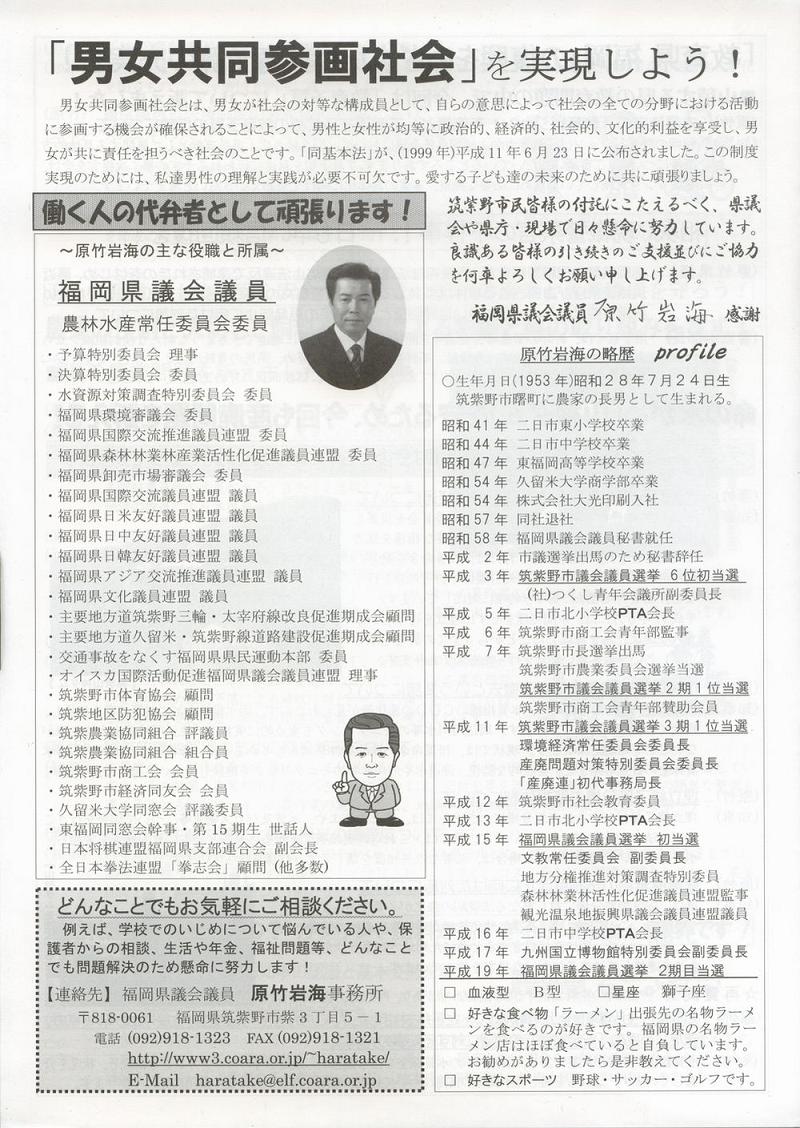 「男女共同参画社会」を実現しよう！
男女共同参画社会とは、男女が社会の対等な構成員として、自らの意思によって社会の全ての分野における活動
に参画する機会が確保されることによって、男性と女性が均等に政治的、経済的、社会的、文化的利益を享受し、男
女が共に責任を担うべき社会のことです。「同基本法」が、(1999年)平成11年6月23日に公布されました。この制度
実現のためには、私達男性の理解と実践が必要不可欠です。愛する子ども達の未来のために共に頑張りましょう。
働く人の代弁者として頑張ります！
～原竹岩海の主な役職と所属～
福岡県議会議員
農林水産常任委員会委員
・予算特別委員会 理事
・決算特別委員会 委員
・水資源対策調査特別委員会 委員
・福岡県環境審議会 委員
・福岡県国際交流推進議員連盟 委員
・福岡県森林林業林産業活性化促進議員連盟 委員
・福岡県卸売市場審議会 委員
・福岡県国際交流議員連盟 議員
・福岡県日米友好議員連盟 議員
・福岡県日中友好議員連盟 議員
・福岡県日韓友好議員連盟 議員
・福岡県アジア交流推進議員連盟 議員
・福岡県文化議員連盟 議員
・主要地方道筑紫野三輪・太宰府線改良促進期成会顧問
・主要地方道久留米・筑紫野線道路建設促進期成会顧問
・交通事故をなくす福岡県県民運動本部 委員
・オイスカ国際活動促進福岡県議会議員連盟 理事
・筑紫野市体育協会 顧問
・筑紫地区防犯協会 顧問
・筑紫農業協同組合 評議員
・筑紫農業協同組合 組合員
・筑紫野市商工会 会員
・筑紫野市経済同友会 会員
・久留米大学同窓会 評議委員
・東福岡同窓会幹事・第15期生 世話人
・日本将棋連盟福岡県支部連合会 副会長
・全日本拳法連盟「拳志会」顧問 (他多数)
どんなことでもお気軽にご相談ください。
例えば、学校でのいじめについて悩んでいる人や、保
護者からの相談、生活や年金、福祉問題等、どんなこと
でも問題解決のため懸命に努力します！
【連絡先】 福岡県議会議員 原竹岩海事務所
〒818-0061 福岡県筑紫野市紫3丁目5－1
電話 (092)918-1323 FAX (092)918-1321
http://www3.coara.or.jp/~haratake/
E-Mail haratake@elf.coara.or.jp
筑紫野市民皆様の付託にこたえるべく、県議
会や県庁・現場で日々懸命に努力しています。
良識ある皆様の引き続きのご支援並びにご協力
を何卒よろしくお願い申し上げます。
福岡県議会議員 原竹岩海 感謝
原竹岩海の略歴 profile
○生年月日(1953年)昭和28年7月24日生
筑紫野市曙町に農家の長男として生まれる。
昭和41年 二日市東小学校卒業
昭和44年 二日市中学校卒業
昭和47年 東福岡高等学校卒業
昭和54年 久留米大学商学部卒業
昭和54年 株式会社大光印刷入社
昭和57年 同社退社
昭和58年 福岡県議会議員秘書就任
平成 2年 市議選挙出馬のため秘書辞任
平成 3年 筑紫野市議会議員選挙 6位初当選
(社)つくし青年会議所副委員長
平成 5年 二日市北小学校PTA会長
平成 6年 筑紫野市商工会青年部監事
平成 7年 筑紫野市長選挙出馬
筑紫野市農業委員会選挙当選
筑紫野市議会議員選挙2期1位当選
筑紫野市商工会青年部賛助会員
平成11年 筑紫野市議会議員選挙3期1位当選
環境経済常任委員会委員長
産廃問題対策特別委員会委員長
「産廃連」初代事務局長
平成12年 筑紫野市社会教育委員
平成13年 二日市中学校PTA会長
平成15年 福岡県議会議員選挙 初当選
文教常任委員会 副委員長
地方分権推進対策調査特別委員
森林林業林活性化促進議員連盟監事
観光温泉地振興県議会議員連盟委員
平成16年 二日市中学校PTA会長
平成17年 九州国立博物館特別委員会副委員長
平成19年 福岡県議会議員選挙 2期目当選
□ 血液型 B型 □星座 獅子座
□ 好きな食べ物「ラーメン」出張先の名物ラーメ
ンを食べるのが好きです。福岡県の名物ラー
メン店はほぼ食べていると自負しています。
お勧めがありましたら是非教えてください。
□ 好きなスポーツ 野球・サッカー・ゴルフです。